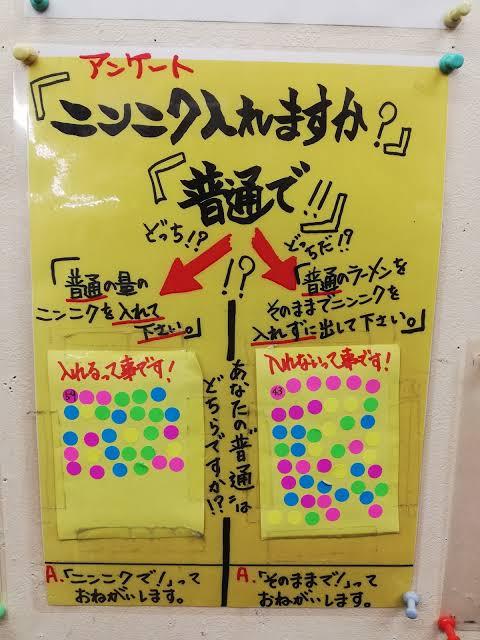 アンケート
『ニンニク入れますか？』
『普通で!!』
どっち!?
どっちだ!?
!?
「普通の量の
ニンニクを入れて
下さい。」
「普通のラーメンを
そのままでニンニクを
入れずに出して下さい。」
入れるって事です！
59
入れないって事です！
43
あなたの"普通"は
どちらですか!?
A.「ニンニクで！」って
おねがいします。
A.「そのままで！」って
おねがいします。